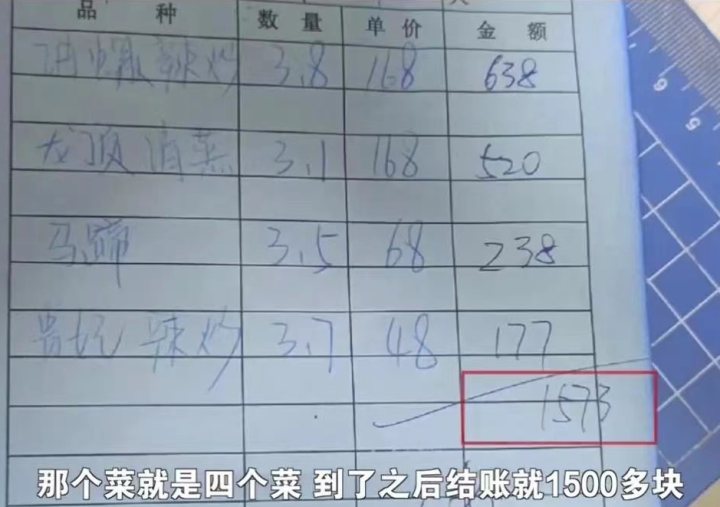 品 种 数 量 单 价 金 额
辣炒 3.8 168 638
3.1 168 520
马蹄 3.5 68 238
贵妃 辣炒 3.7 48 177
1573
那个菜就是四个菜 到了之后结账就1500多块